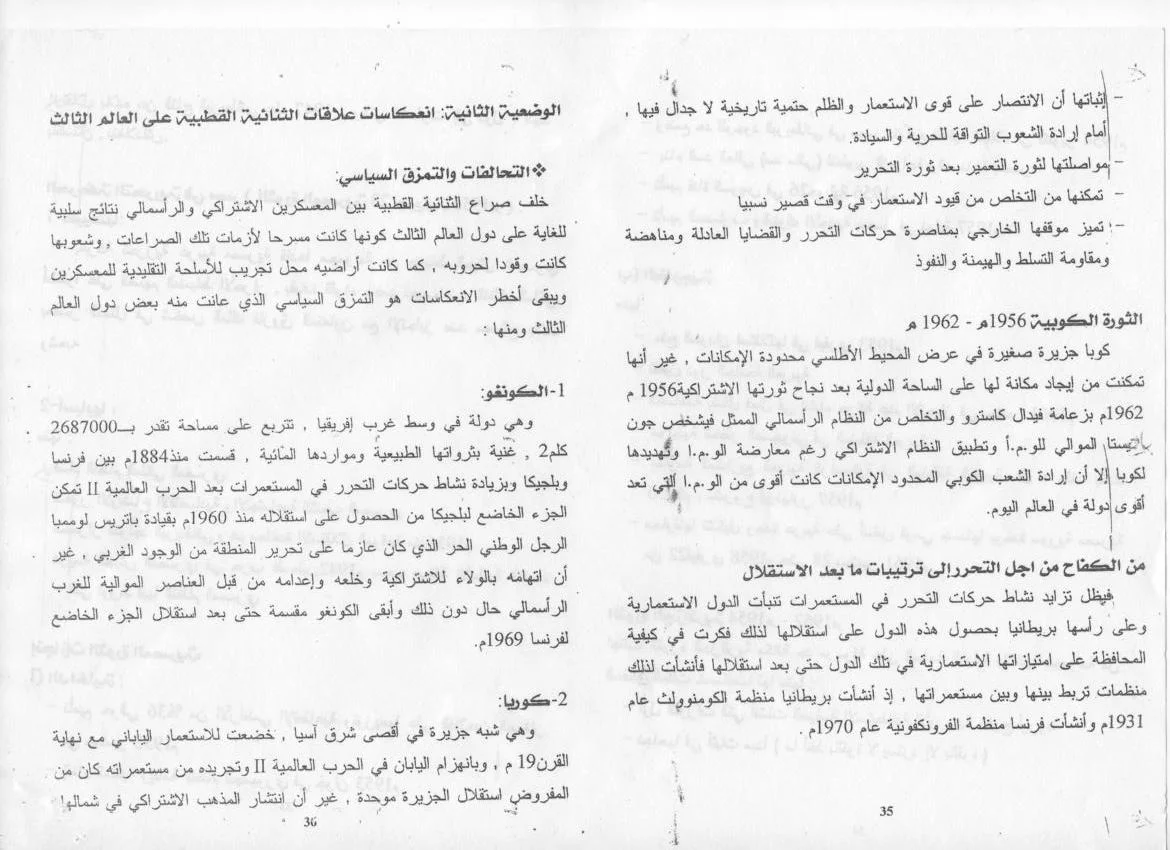 - إثباتها أن الانتصار على قوى الاستعمار والظلم حتمية تاريخية لا جدال فيها ,
أمام إرادة الشعوب التواقة للحرية والسيادة.
- مواصلتها لثورة التعمير بعد ثورة التحرير
- تمكنها من التخلص من قيود الاستعمار في وقت قصير نسبيا
- تميز موقفها الخارجي بمناصرة حركات التحرر والقضايا العادلة ومناهضة
ومقاومة التسلط والهيمنة والنفوذ
الثورة الكوبية 1956م - 1962 م
كوبا جزيرة صغيرة في عرض المحيط الأطلسي محدودة الإمكانات , غير أنها
تمكنت من إيجاد مكانة لها على الساحة الدولية بعد نجاح ثورتها الاشتراكية1956 م
1962م بزعامة فيدال كاسترو والتخلص من النظام الرأسمالي الممثل فيشخص جون
باتيستا الموالي للو.م.أ وتطبيق النظام الاشتراكي رغم معارضة الو.م.ا وتهديدها
لكوبا إلا أن إرادة الشعب الكوبي المحدود الإمكانات كانت أقوى من الو.م.ا التي تعد
أقوى دولة في العالم اليوم.
من الكفاح من اجل التحررإلى ترتيبات ما بعد الاستقلال
فيظل تزايد نشاط حركات التحرر في المستعمرات تنبأت الدول الاستعمارية
وعلى رأسها بريطانيا بحصول هذه الدول على استقلالها لذلك فكرت في كيفية
المحافظة على امتيازاتها الاستعمارية في تلك الدول حتى بعد استقلالها فأنشأت لذلك
منظمات تربط بينها وبين مستعمراتها , إذ أنشأت بريطانيا منظمة الكومنوولث عام
1931م وأنشأت فرنسا منظمة الفرونكفونية عام 1970م .
35
الوضعية الثانية: انعكاسات علاقات الثنائية القطبية على العالم الثالث
❖التحالفات والتمزق السياسي:
خلف صراع الثنائية القطبية بين المعسكرين الاشتراكي والرأسمالي نتائج سلبية
للغاية على دول العالم الثالث كونها كانت مسرحا لأزمات تلك الصراعات , وشعوبها
كانت وقودا لحروبه , كما كانت أراضيه محل تجريب للأسلحة التقليدية للمعسكرين
ويبقى أخطر الانعكاسات هو التمزق السياسي الذي عانت منه بعض دول العالم
الثالث ومنها :
1-الكونغو:
وهي دولة في وسط غرب إفريقيا , تتربع على مساحة تقدر بــ2687000
كلم2 , غنية بثرواتها الطبيعية ومواردها المائية , قسمت منذ1884م بين فرنسا
وبلجيكا وبزيادة نشاط حركات التحرر في المستعمرات بعد الحرب العالمية II تمكن
الجزء الخاضع لبلجيكا من الحصول على استقلاله منذ 1960م بقيادة باتريس لوممبا
الرجل الوطني الحر الذي كان عازما على تحرير المنطقة من الوجود الغربي , غير
أن اتهامه بالولاء للاشتراكية وخلعه وإعدامه من قبل العناصر الموالية للغرب
الرأسمالي حال دون ذلك وأبقى الكونغو مقسمة حتى بعد استقلال الجزء الخاضع
لفرنسا 1969م.
2-كوريا:
وهي شبه جزيرة في أقصى شرق آسيا , خضعت للاستعمار الياباني مع نهاية
القرن19 م , وبانهزام اليابان في الحرب العالمية II وتجريده من مستعمراته كان من
المفروض استقلال الجزيرة موحدة , غير أن انتشار المذهب الاشتراكي في شمالها
36